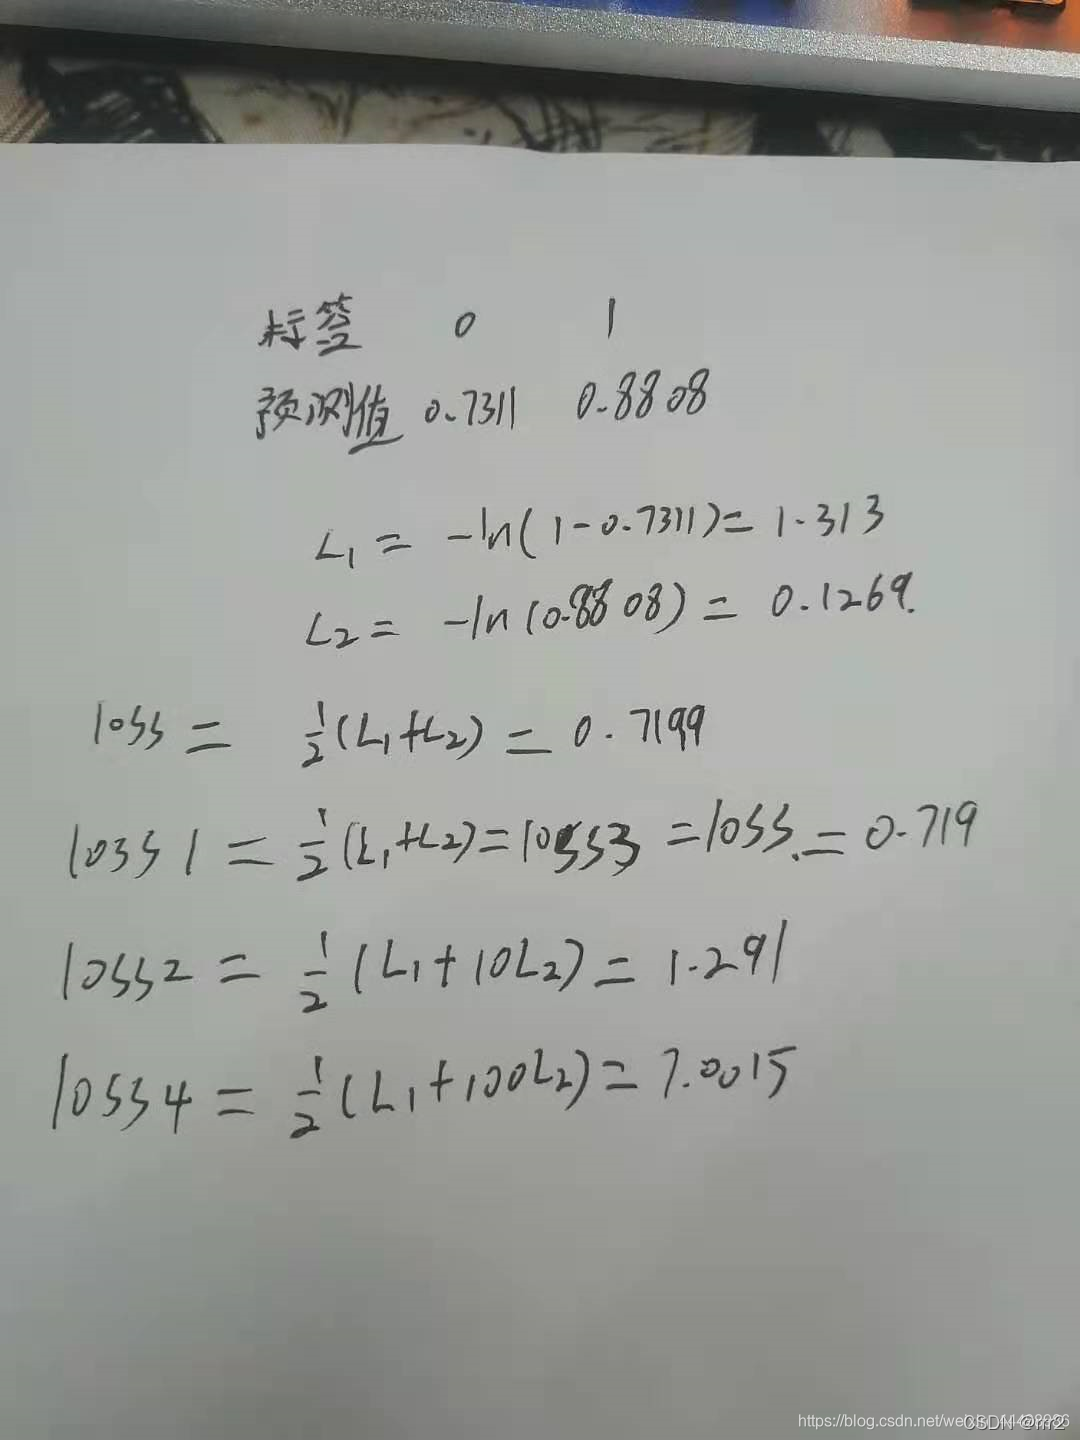 标签 0 1
预测值 0.7311 0.8808
L₁ = -ln(1-0.7311) = 1.313
L₂ = -ln(0.8808) = 0.1269.
loss = ½(L₁+L₂) = 0.7199
loss1 = ½(L₁+L₂) = loss3 = loss. = 0.719
loss2 = ½(L₁+10L₂) = 1.291
loss4 = ½(L₁+100L₂) = 7.0015